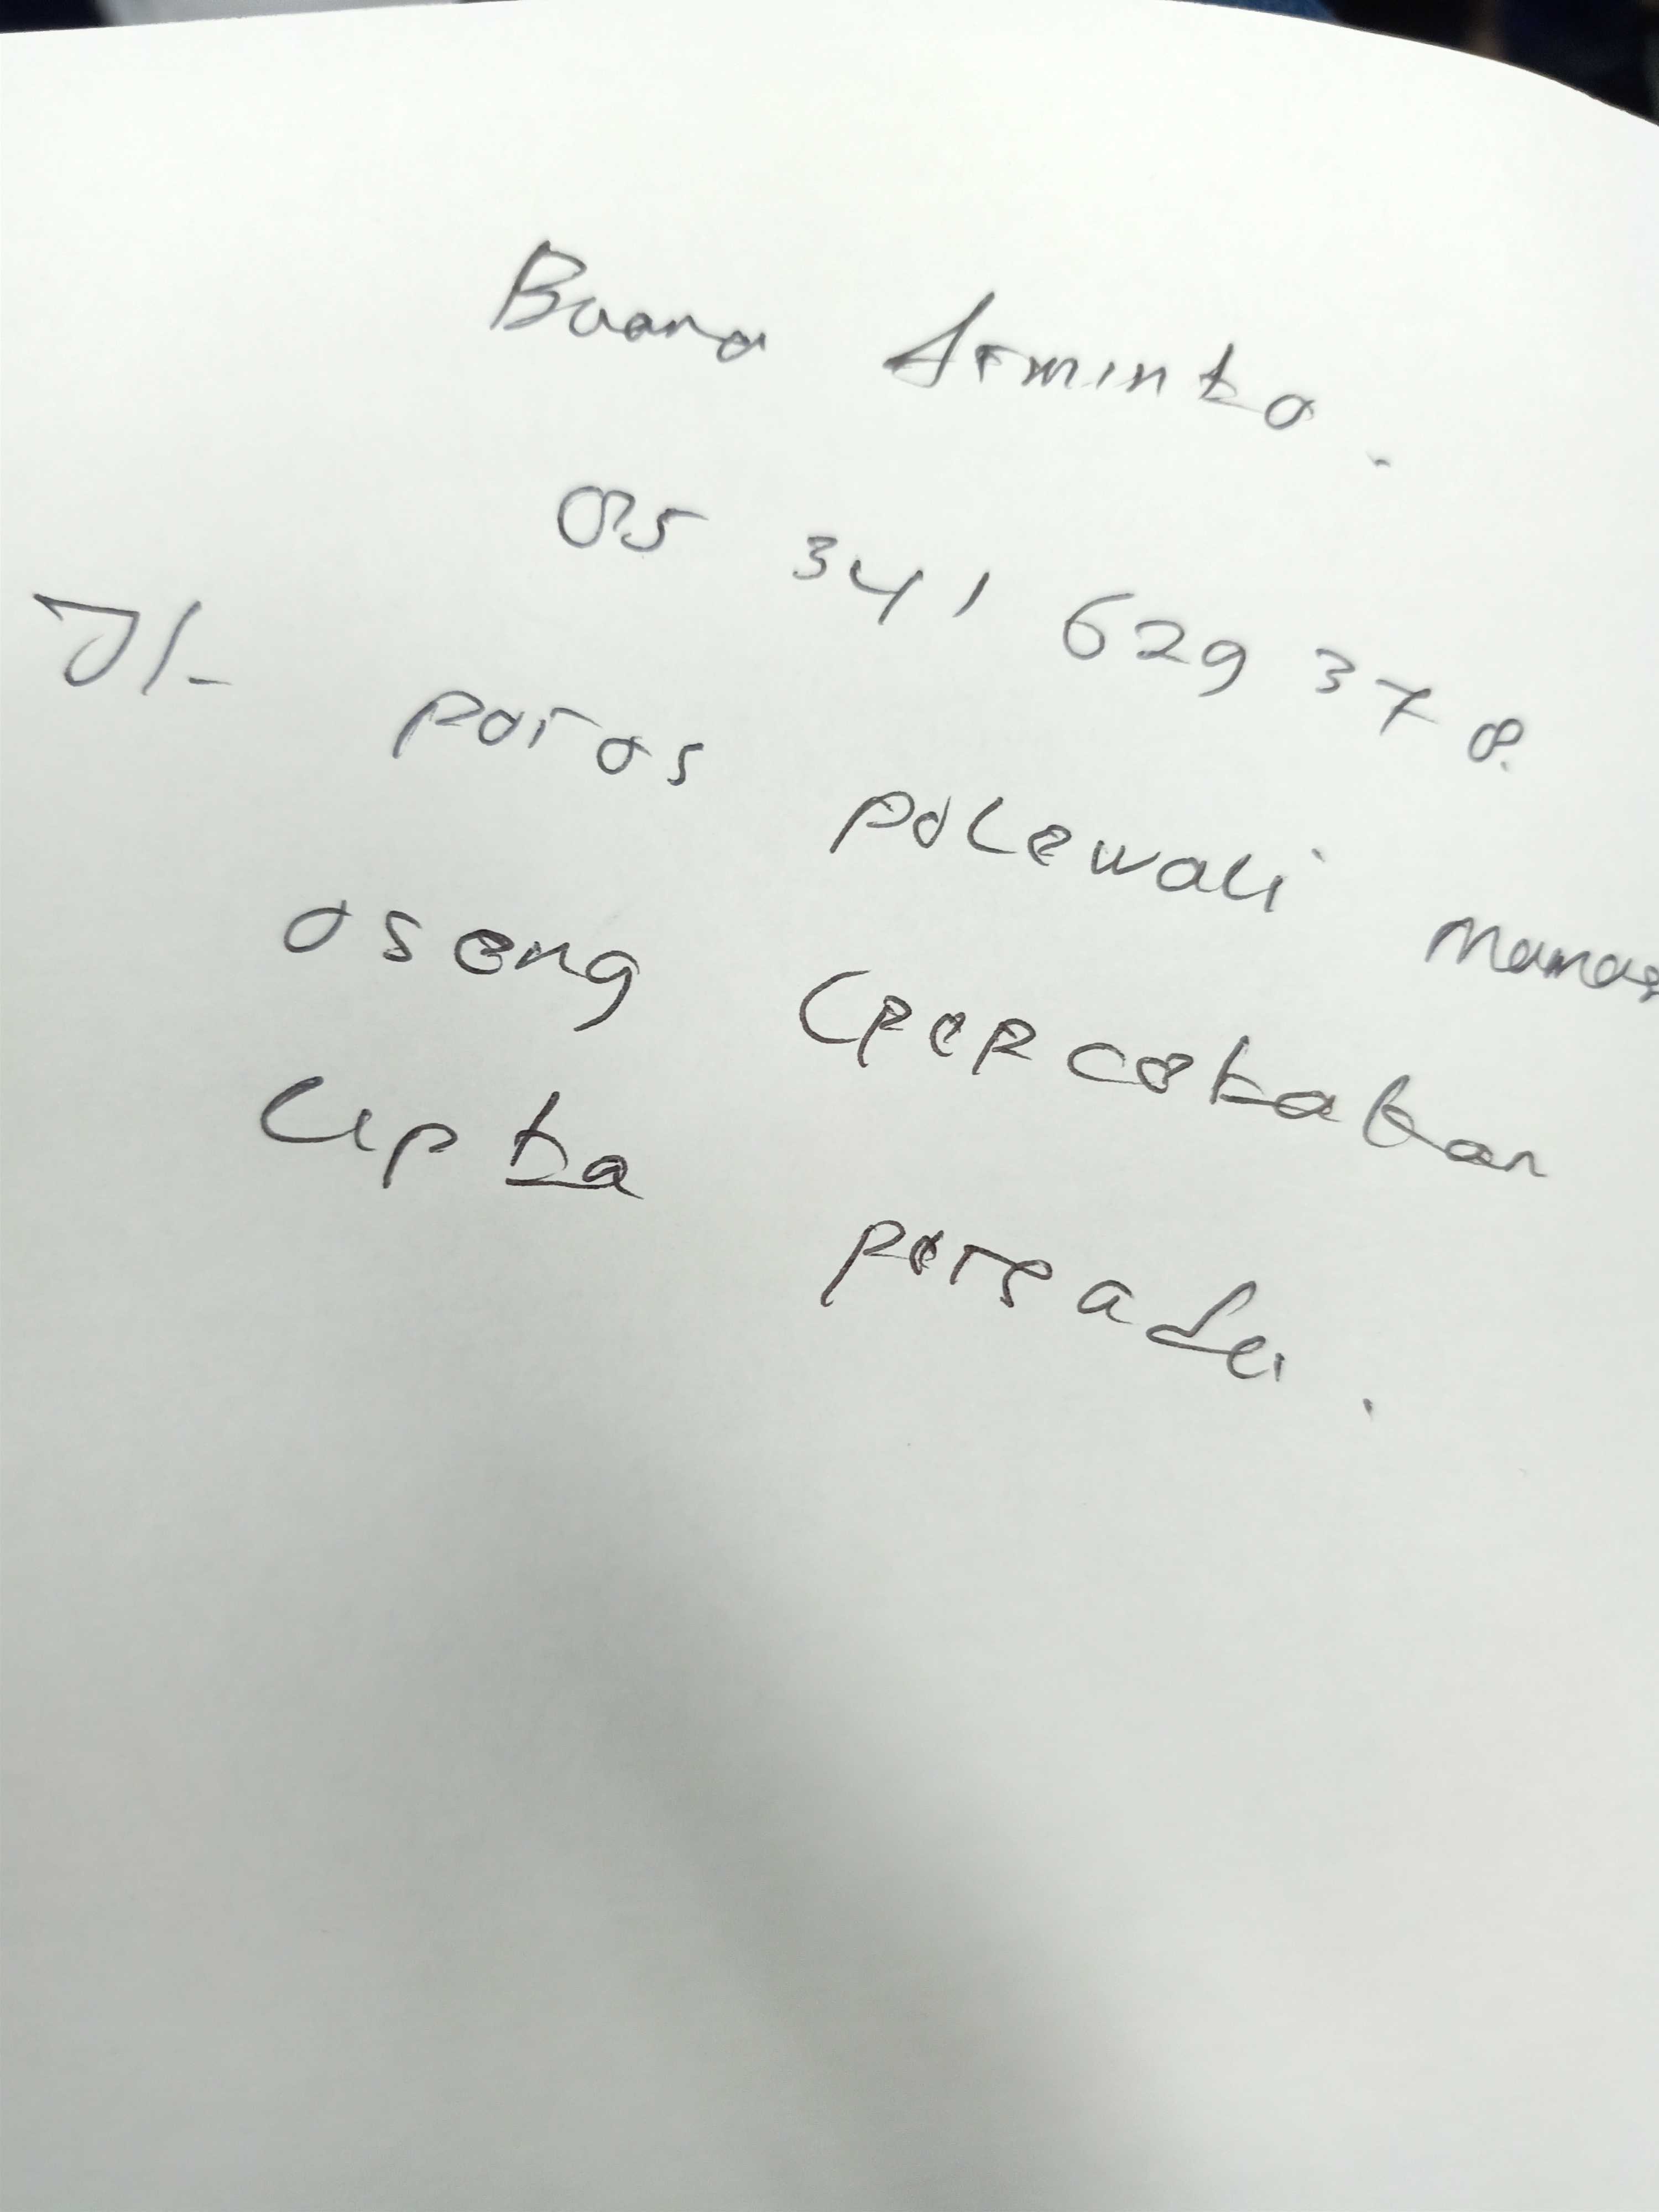 Buana Arminto.
085 341 629 378.
Jl. poros polewali mamasa
oseng (percetakan
Cipta persada.